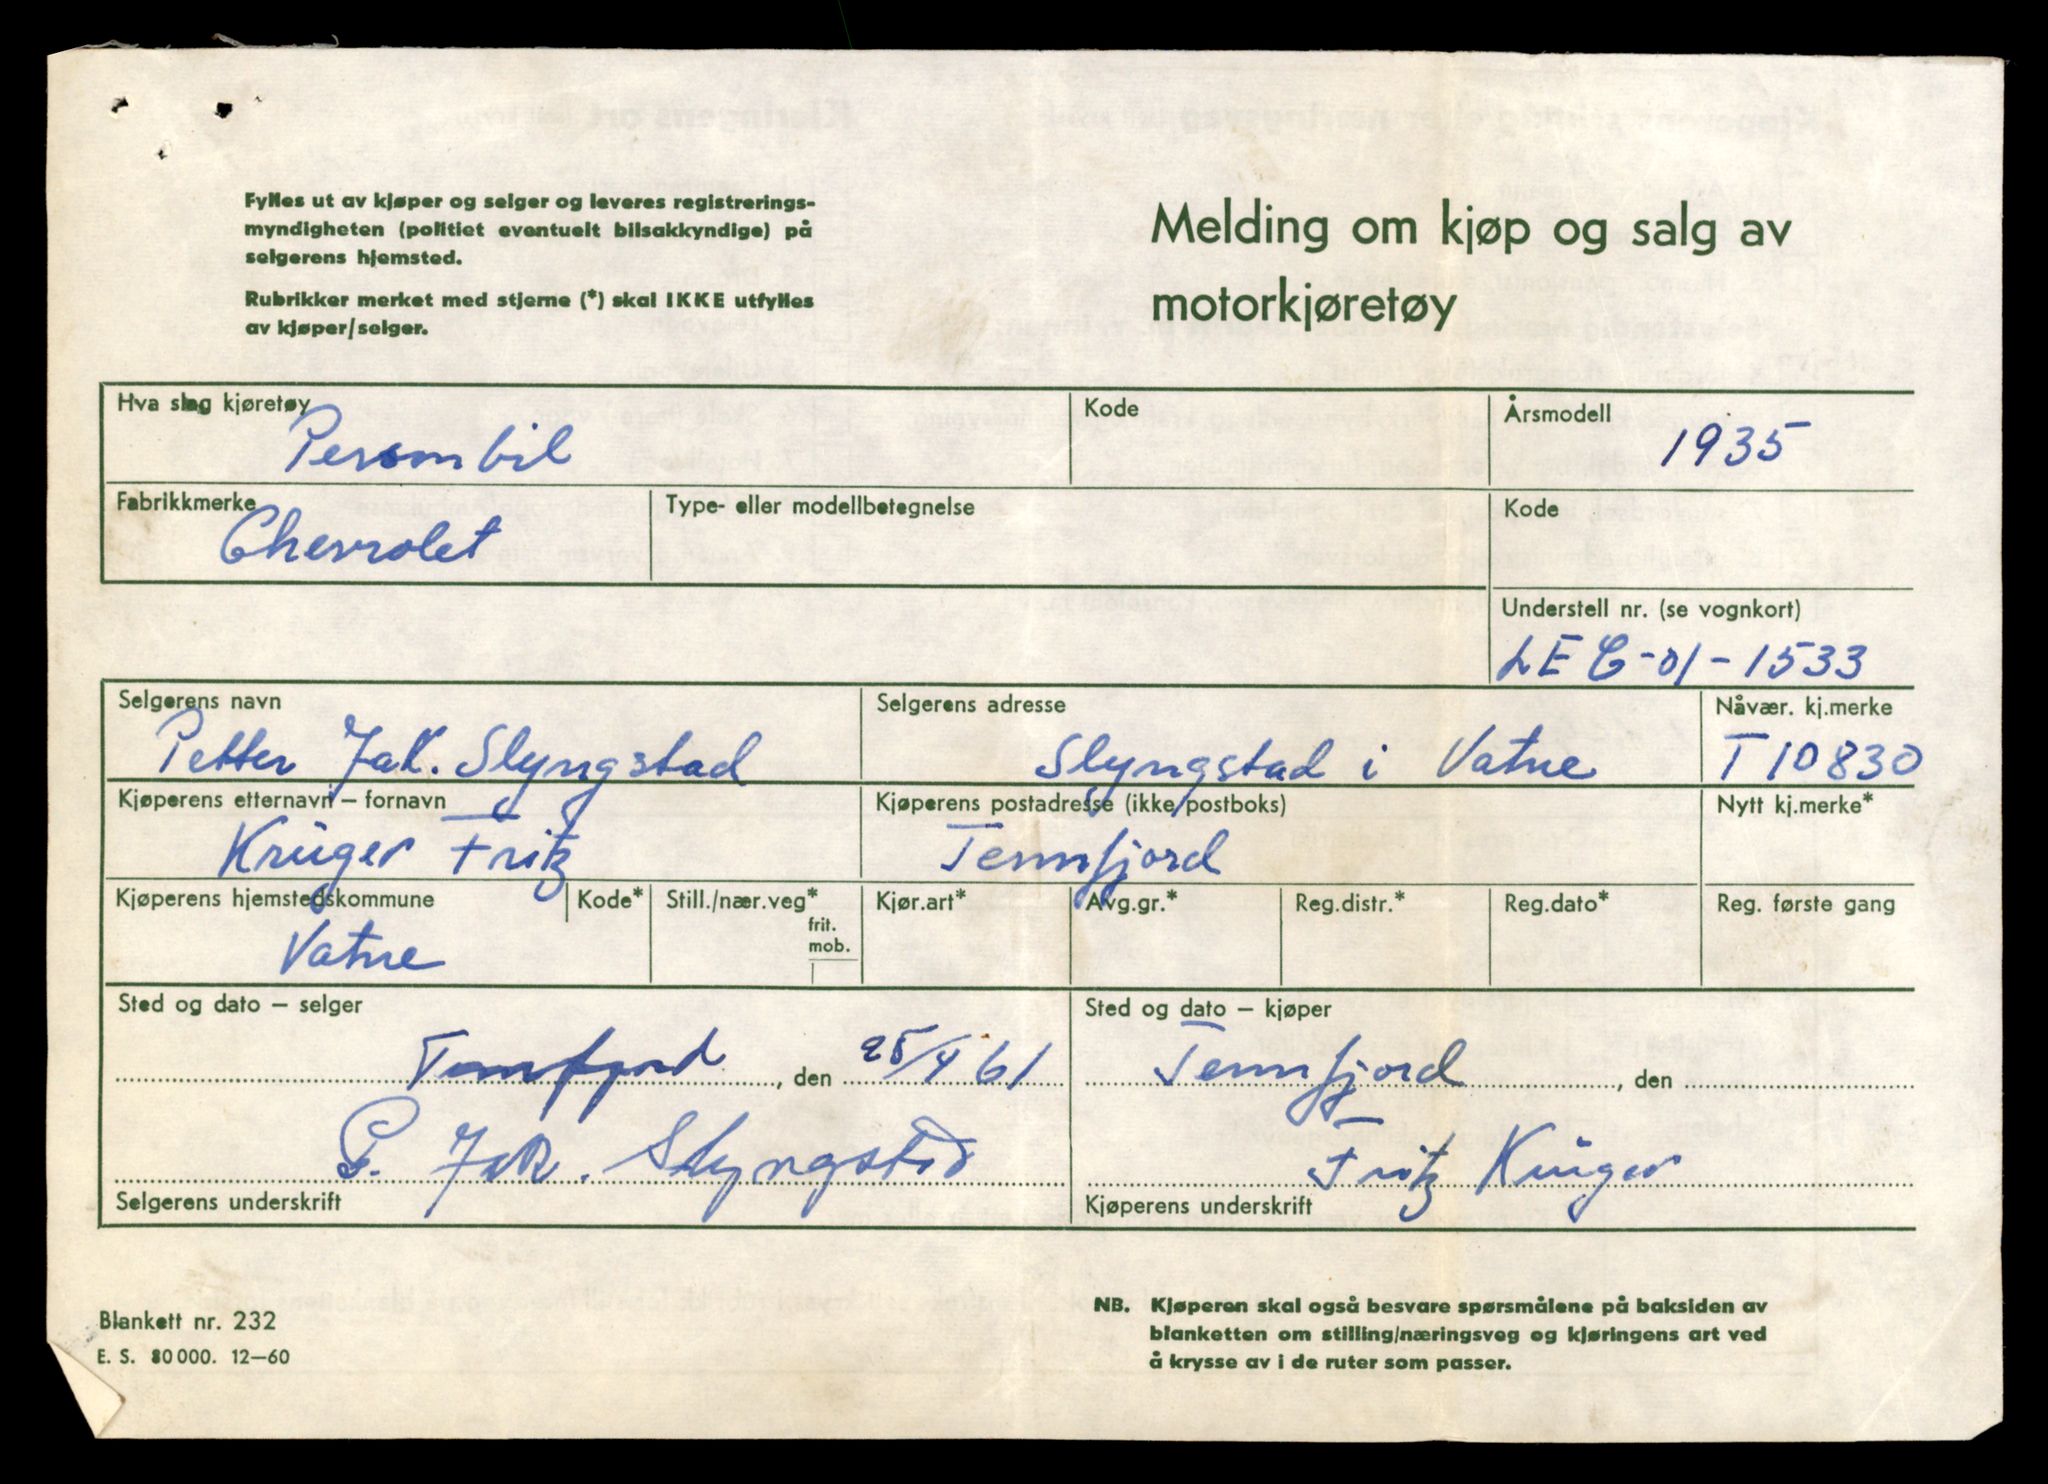 Fylles ut av kjøper og selger og leveres registrerings-
myndigheten (politiet eventuelt bilsakkyndige) på
selgerens hjemsted.
Rubrikker merket med stjerne (*) skal IKKE utfylles
av kjøper/selger.
Melding om kjøp og salg av
motorkjøretøy
Hva slag kjøretøy Kode Årsmodell
Personbil 1935
Fabrikkmerke Type- eller modellbetegnelse Kode
Chevrolet
Understell nr. (se vognkort)
LEC-01-1533
Selgerens navn Selgerens adresse Nåvær. kj.merke
Petter Jak. Slyngstad Slyngstad i Vatne T 10830
Kjøperens etternavn – fornavn Kjøperens postadresse (ikke postboks) Nytt kj.merke*
Krüger Fritz Tennfjord
Kjøperens hjemstedskommune Kode* Still./nær.veg* Kjør.art* Avg.gr.* Reg.distr.* Reg.dato* Reg. første gang
frit.
mob.
Vatne
Sted og dato – selger Sted og dato – kjøper
Tennfjord, den 25/4 61 Tennfjord, den
P. Jak. Slyngstad Fritz Krüger
Selgerens underskrift Kjøperens underskrift
Blankett nr. 232
E. S. 80000. 12—60
NB. Kjøperen skal også besvare spørsmålene på baksiden av
blanketten om stilling/næringsveg og kjøringens art ved
å krysse av i de ruter som passer.